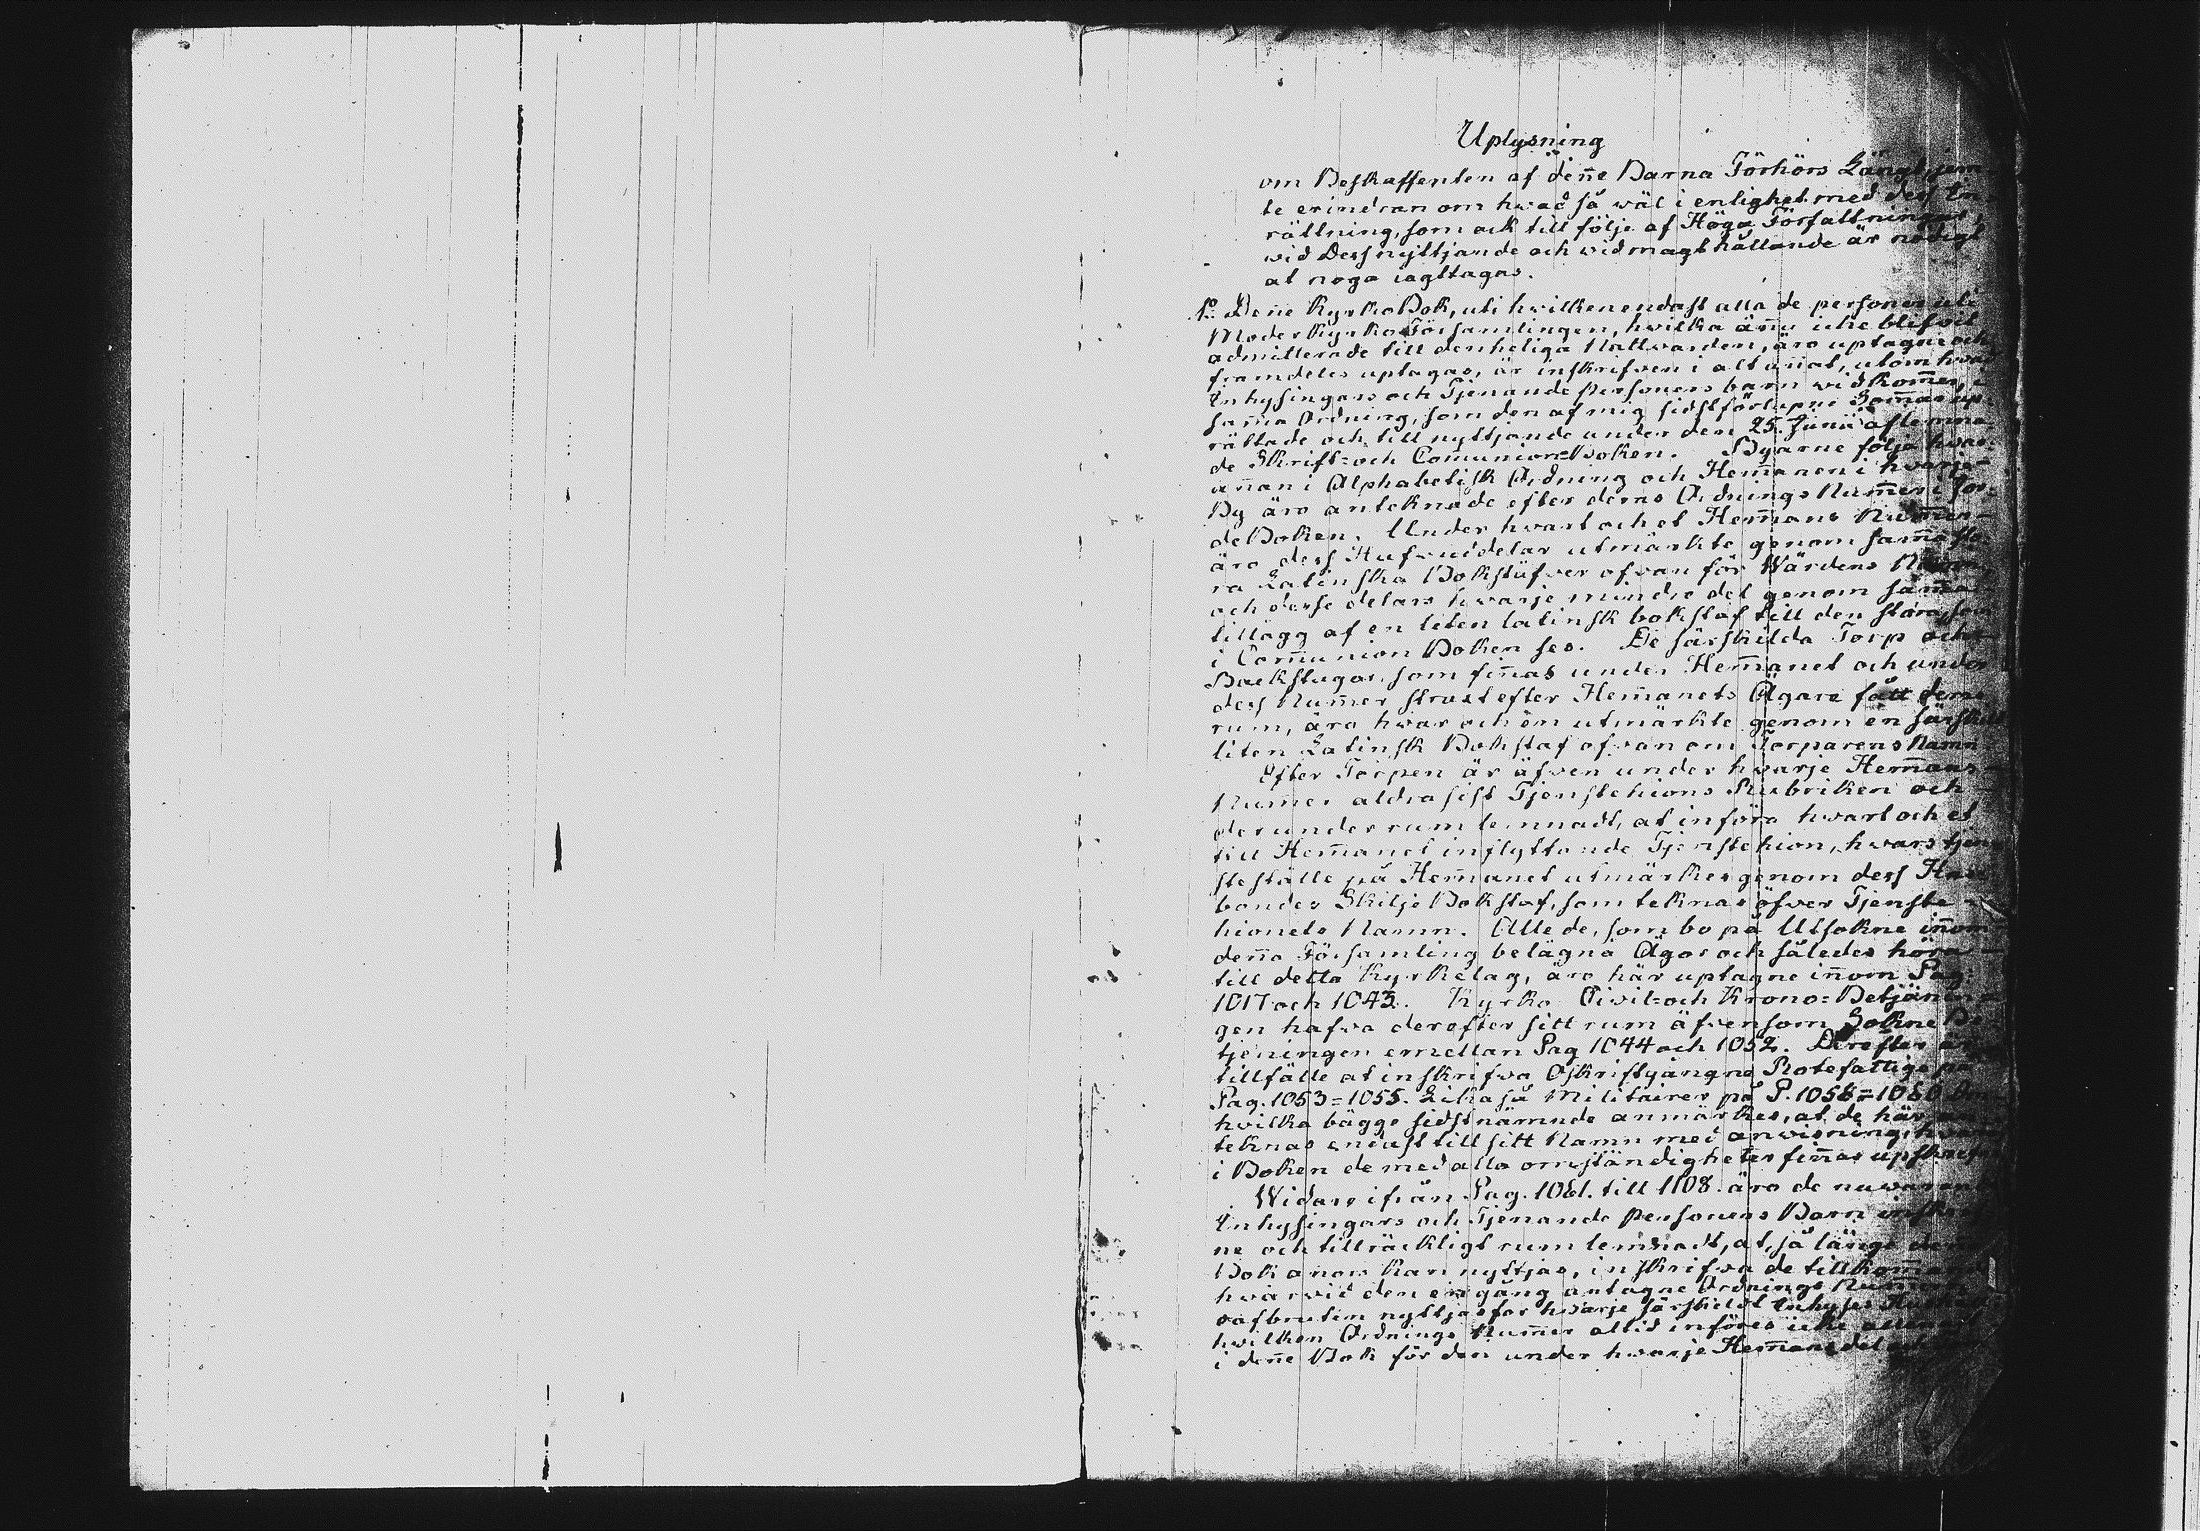 Uplysning
om Beskaffenten af denne Barna Förhörs Längd, jem
te erindran om hwad så wäl i enlighet med dess In
rättning, som ock till följe af Höga Författningar,
wid Dess nyttjande och widmagthållande är nödigt
at noga iagttagas.
1o Denne KyrkoBok, uti hwilken endast alla de personer uti
ModerKyrkoFörsamlingen, hvilka ännu icke blifvit
admitterade till den heliga Nattwarden, äro uptagne och
framdeles uptagas, är inskrifven i alt annat, utom hwad
Inhysingars och Tjenande Personers barn widkommer, i
samma Ordning, som den af mig sidstförlupne Sommar up-
rättade och till nyttjande under den 25. Junii aflemna-
de Skrift= och Communion=Boken. Byarne följa hwar-
annan i Alphabetisk Ordning och Hemanen i hwarje
By äro anteknade efter deras Ordnings Nummer i Jor-
deBoken. Under hwart och et Hemans Nummer
äro dess Hufvuddelar utmärkte genom samma sto-
ra Latinska Bokstäfver ofvan för Wärdens Namn,
och desse delars hwarje mindre del genom samma
tillägg af en liten latinsk bokstaf till den stora, som
i Communion Boken ses. De särskilda Torp och
Backstugor, som finnas under Hemanet och under
dess Nummer strast efter Hemanets Ägare fått deras
rum, äro hwar och en utmärkte genom en särskild
liten Latinsk Bokstaf ofvan om Torparens Namn
Efter Torpen är äfven under hwarje Hemans
Nummer aldrasist Tjenstehions Rubriken och
derunder rum lemnadt, at införa hwart och et
till Hemanet inflyttande Tjenstehion, hwars tjen-
steställe på Hemanet utmärkes genom dess Hus
bondes Skilje Bokstaf, som teknas öfver Tjenste-
hionets Namn. Alle de, som bo på Utsokne innom
denna Församling belägna Ägor och således höra
till detta Kyrkelag, äro här uptagne innom Pag.
1017 och 1043. Kyrko Civil= och Krono=Betjänin-
gen hafva derefter sitt rum äfvensom Sokne Be
tjeningen emellan Pag 1044 och 1052. Derefter är
tillfälle at inskrifva Oskriftgångne Rotefattige på
Pag. 1053=1055. Lika så Militairer på P. 1058=1080
hvilka bägge sidstnämnde anmärkes, at de här an
teknas endast till sitt Namn med anwisning, hwar
i Boken de med alla omständigheter finnas upskrefne
Widare ifrån Pag. 1081. till 1108. äro de nuwarande
Inhysingars och Tjenande Personers Barn inskref
ne och tillräckligt rum lemnadt, at, så länge denne
Bok anors kan nyttjas, inskrifva de tillkommande
hwarvid den en gång antagne Ordnings Nummer
oafbruten nyttjas för hwarje särskildt Inhyses
hwilken Ordnings Nummer altid införes icke allenast
i denne Bok för den under hwarje Hemansdel